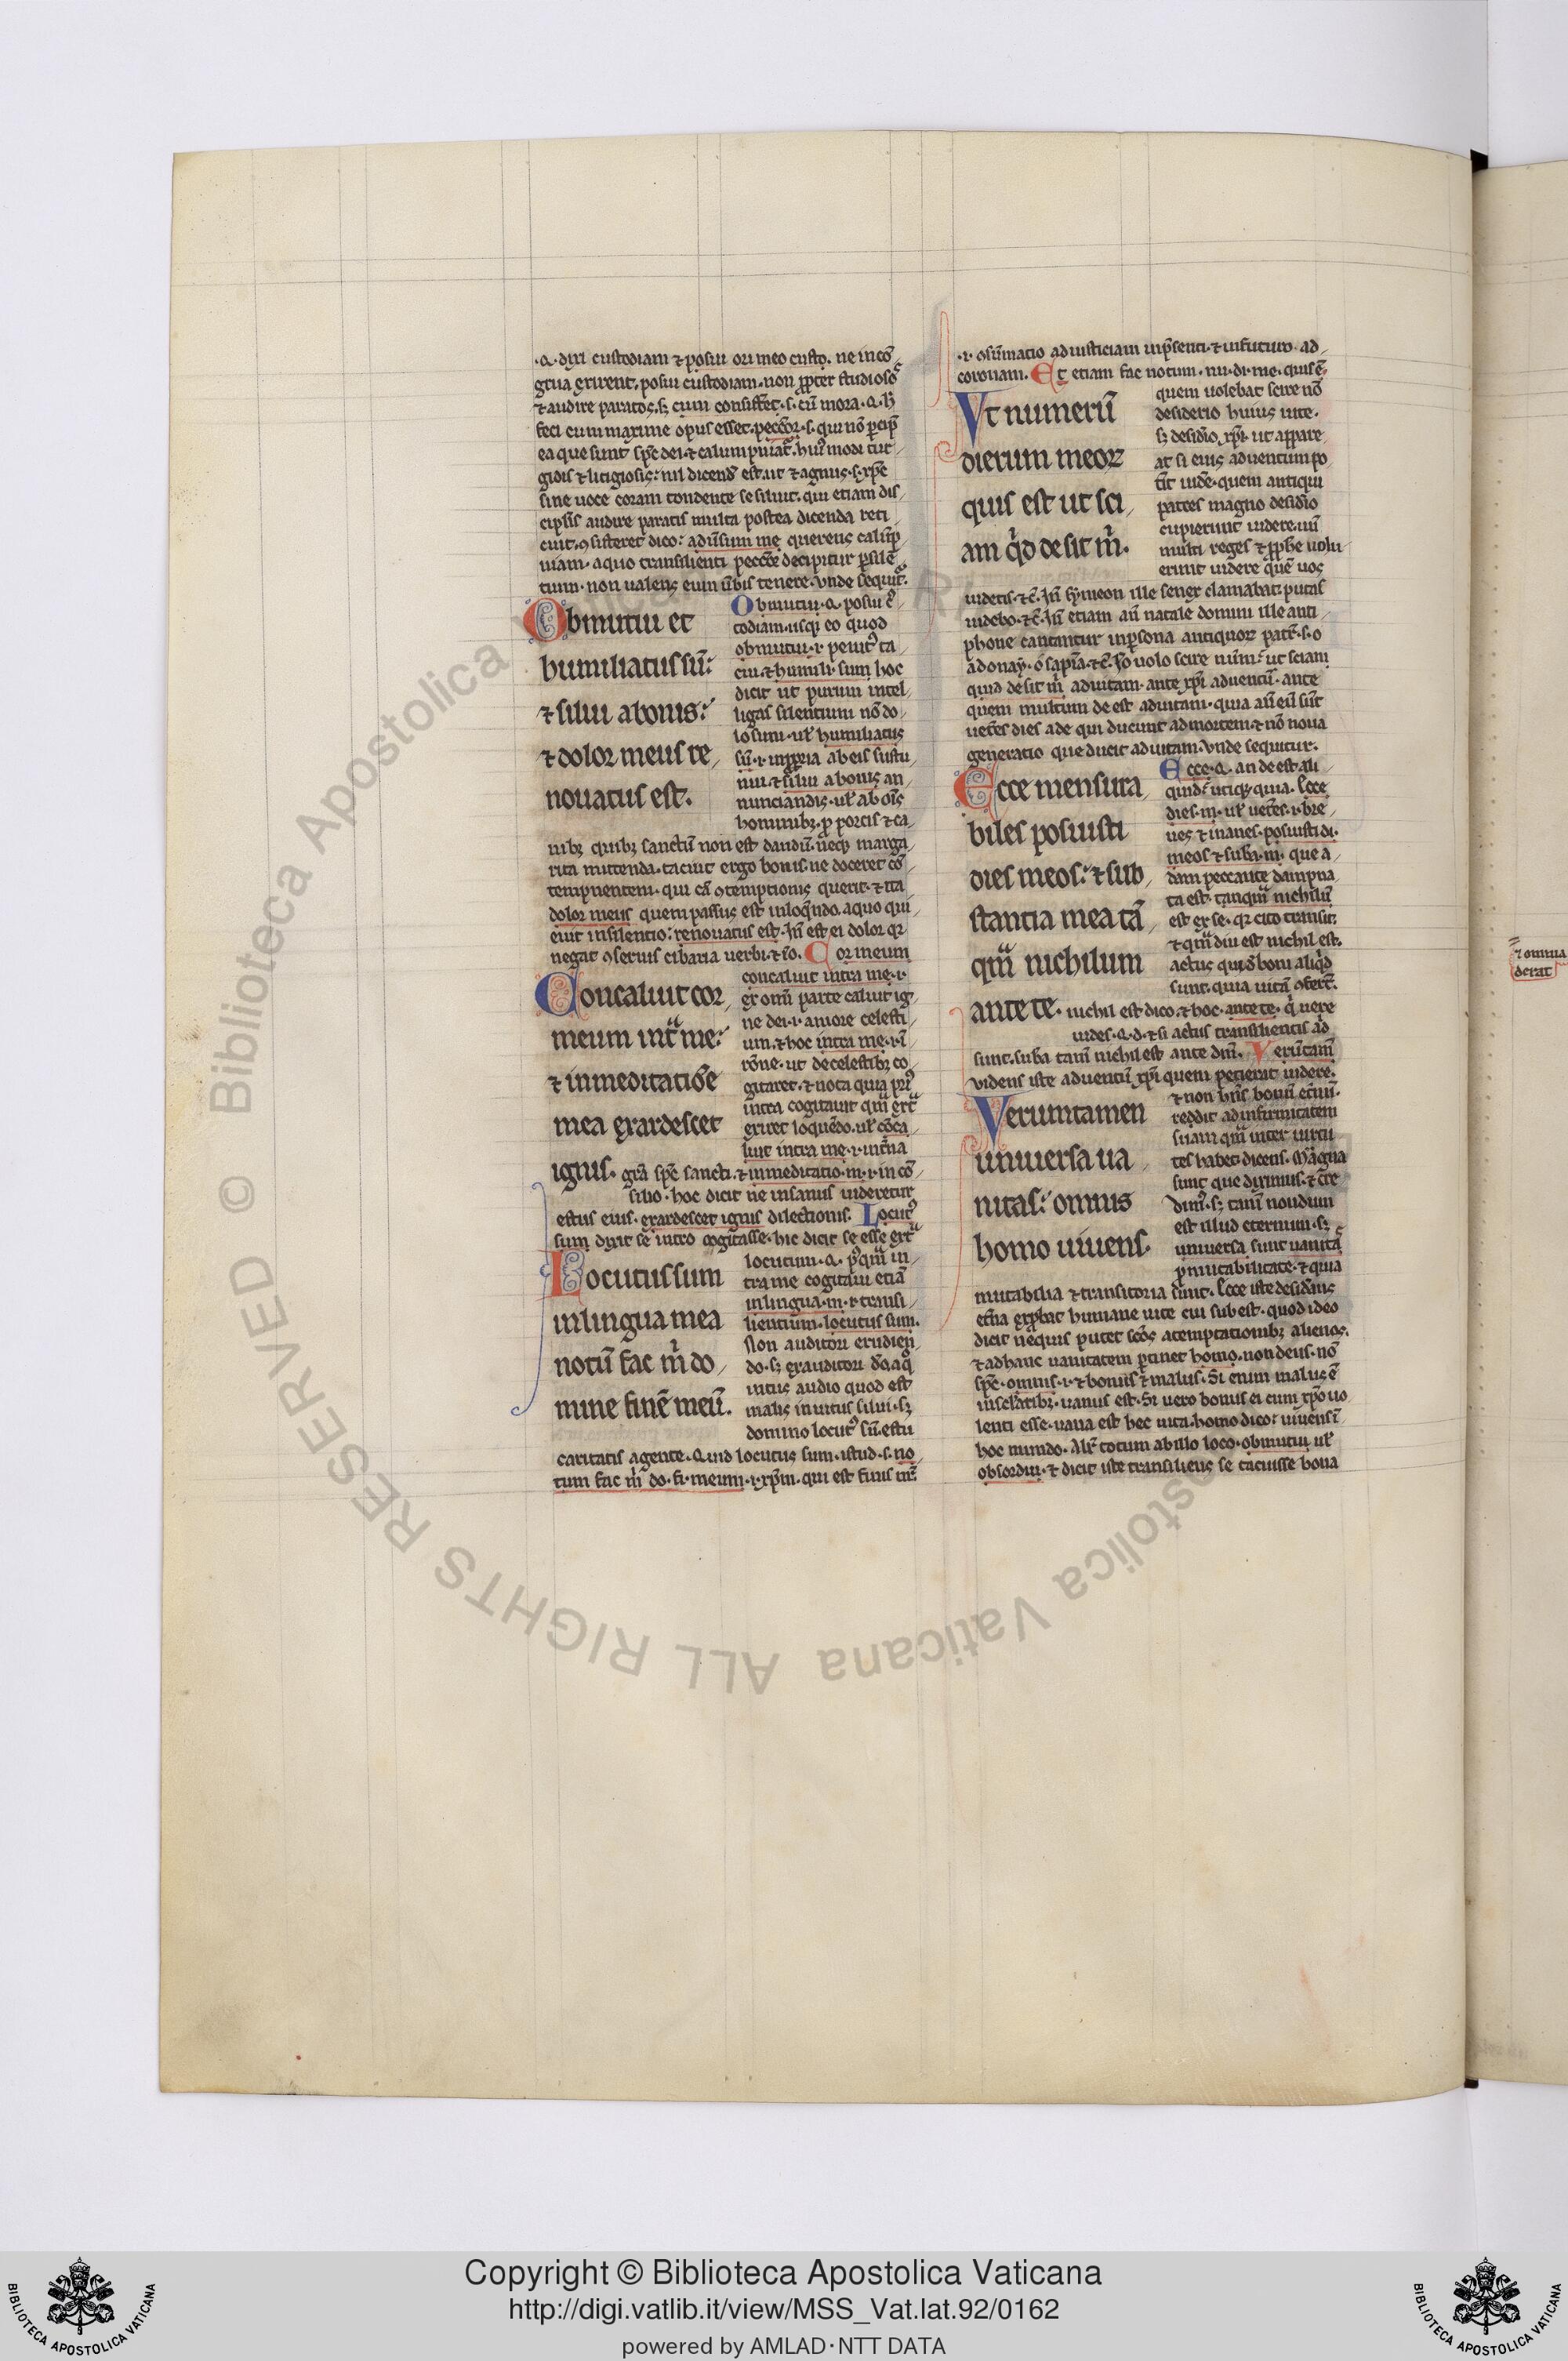 .Q. dixi custodiam ⁊ posui ori meo custo. ne incō
grua exirent. posui custodiam. non propter studiosos
⁊ audire paratos. sꝫ cum consisteret .s. cū mora .q. h̄
feci cum maxime opus esset. peccator .s. qui nō percipit
ea que sunt spc dei. ⁊ calumpniat᷑. huiusmodi tur
gidis ⁊ litigiosis: nil dicend est. ut ⁊ agnus .s. xp̄c
sine uoce coram tondente se siluit. qui etiam dis
cipulis audire paratis multa postea dicenda reti
cuit. ꝯsisteret dico: aduersum me querens calūp
niam. a quo transilienti peccatore decipitur per silen
tium. non ualens eum uerbis tenere. vnde sequit᷑.
Obmutui et
humiliatus sū:
⁊ silui a bonis:
⁊ dolor meus re
nouatus est.
Obmutui .q. posui c᷑
todiam. usqꝫ eo quod
obmutui .i. penitꝰ ta
cui. ⁊ humili. sum hoc
dicit ut purum intel
ligas silentium nō do
losum. ul᷑ humiliatus
sū .i. inpropria ab eis sustu
nui. ⁊ silui a bonis an
nunciandis. ul᷑ ab oīs
hominibꝫ. pro porcis ⁊ ca
nibꝫ quibꝫ sanctū non est dandū. neqꝫ marga
rita mittenda. tacuit ergo bonis. ne doceret cō
tempnentem. qui cā ꝯtemptionis querit. ⁊ ita
dolor meus quem passus est in loq̄ndo. a quo qui
euit in silentio: renouatus est. In̄ est ei dolor qr
negat ꝯseruis cibaria uerbi. ⁊ iō. Cor meum
Concaluit cor
meum intra me:
⁊ in meditatiōe
mea exardescet
ignis.
concaluit intra me .i.
ex omi parte caluit ig
ne dei .i. amore celesti
um. ⁊ hoc intra me .i. ī
rōne. ut de celestibꝫ co
gitaret. ⁊ nota quia priꝰ
intra cogitauit quam extra
exiret loquēdo. ul᷑ cōca
luit intra me .i. int̄na
gr̄a spc̄ sancti. ⁊ in meditatio. m. i. in cō
silio. hoc dicit ne insanus uideretur
estus eius. exardescet ignis dilectionis. Locutꝰ
sum dixit se intro cogitasse. hic dicit se esse extra
Locutus sum
in lingua mea
notū fac m̄ do
mine finē meū.
locutum .q. pꝰquam in
tra me cogitaui etiā
in lingua .m. i. transi
lientium. locutus sum.
Non auditori erudien
do. sꝫ exauditori do. a q̄
intus audio quod est
malis inuitus silui. sꝫ
domino locutꝰ sū. estu
caritatis agente. Quid locutus sum. istud .s. no
tum fac m̄ do. fi. meum .i. xp̄m. qui est finis
.i. ꝯsūmatio ad iusticiam in p̄senti. ⁊ in futuro ad
coronam. Et etiam fac notum. nu. di. me. quis ē
Vt numerū
dierum meoꝝ
quis est ut sci
am qd desit m̄.
quem uolebat scire nō
desiderio huius uite.
sꝫ desidio xp̄i. ut appare
at si eius aduentum po
tit uide. quem antiqui
patres magno desidio
cupierunt uidere. un̄
multi reges ⁊ pphe uolu
erunt uidere que uos
uidetis. ⁊c̄. In̄ symeon ille senex clamabat: putas
uidebo. ⁊c̄. In̄ etiam an̄ natale domini ille anti
phone cantantur in persona antiquoꝝ patr̄ .s. o
adonay. o sapīa. ⁊c̄. Io uolo scire num̄. ut sciam
quid desit m̄ ad uitam. ante xp̄i aduentū. ante
quem multum de est ad uitam. quia an̄ eū sūt
ueteres dies ade qui ducunt ad mortem. ⁊ nō noua
generatio que ducit ad uitam. Vnde sequitur.
Ecce mensura
biles posuisti
dies meos: ⁊ sub
stantia mea tā
quam nichilum
ante te.
Ecce .q. an de est ali
quid: utiqꝫ quia. Ecce
dies .m. ul᷑ ueteres .i. bre
ues ⁊ inanes. posuisti di.
meos ⁊ suba. m. que a
dam peccante dampna
ta est. tanquam nichilū
est ex se. qr cito transit.
⁊ quam diu est nichil est.
actus quidem boni aliqd
sunt. quia uitā ꝯferūt.
nichil est dico. ⁊ hoc. ante te. q uere
uides .q.d. ⁊ si actus transilientis ad
sunt. suba tam̄ nichil est ante dm̄. Verūtam̄
Videns iste aduentū xp̄i quem petierat uidere.
Veruntamen
uniuersa ua
nitas: omnis
homo uiuens.
⁊ non h̄ns bonū etnū.
reddit ad infirmitatem
suam quam inter uirtu
tes habet. dicens. Magna
sunt que diximus. ⁊ cre
dimꝰ. sꝫ tam̄ nondum
est illud eternum. sꝫ
uniuersa sunt uanitas
pro mutabilitate. ⁊ quia
mutabilia ⁊ transitoria sunt. Ecce iste desidans
etna exprobat humane uite cui sub est. quod ideo
dicit ne quis putet scōs a temptationibꝫ alienos.
⁊ ad hanc uanitatem ꝑtinet homo. non deus. nō
spc̄. omnis .i. ⁊ bonus ⁊ malus. Si enim malus ē
in sceleratibꝫ. uanus est. Si uero bonus ei cum xp̄o uo
lenti esse. uana est hec uita. homo dico: uiuens ī
hoc mundo. Al᷑ totum ab illo loco. obmutui. ul᷑
obsordui. ⁊ dicit iste transiliens se tacuisse bona
⁊ omnia
derat
© Biblioteca Apostolica Vaticana ALL RIGHTS RESERVED
Copyright © Biblioteca Apostolica Vaticana
http://digi.vatlib.it/view/MSS_Vat.lat.92/0162
powered by AMLAD·NTT DATA
BIBLIOTECA APOSTOLICA VATICANA
BIBLIOTECA APOSTOLICA VATICANA